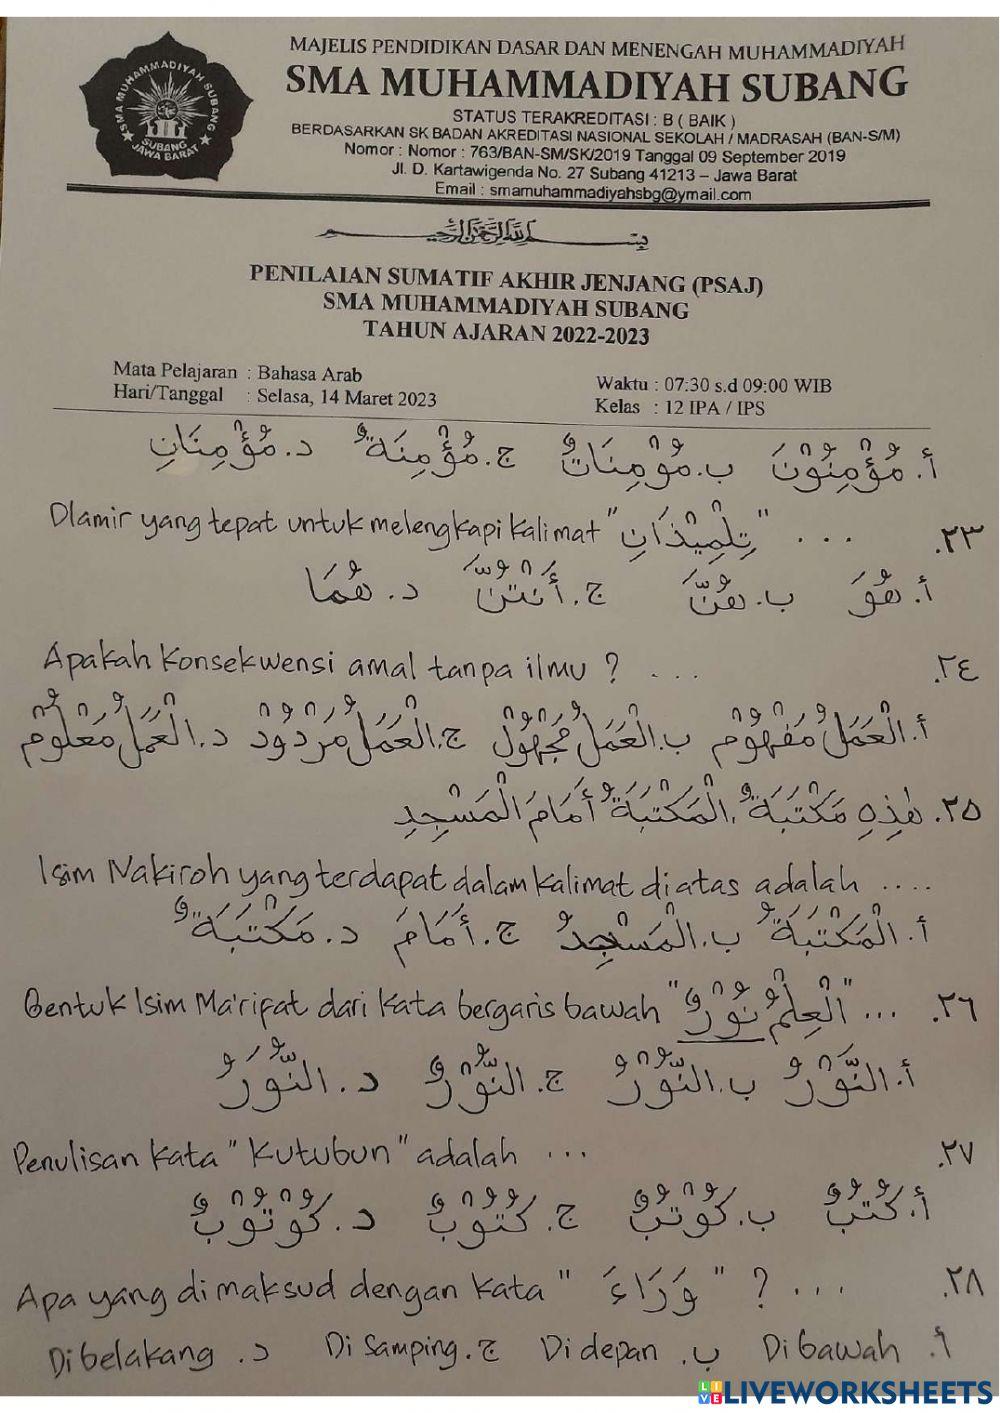 MAJELIS PENDIDIKAN DASAR DAN MENENGAH MUHAMMADIYAH
SMA MUHAMMADIYAH SUBANG
STATUS TERAKREDITASI : B ( BAIK )
BERDASARKAN SK BADAN AKREDITASI NASIONAL SEKOLAH / MADRASAH (BAN-S/M)
Nomor : Nomor : 763/BAN-SM/SK/2019 Tanggal 09 September 2019
Jl. D. Kartawigenda No. 27 Subang 41213 – Jawa Barat
Email : smamuhammadiyahsbg@ymail.com
SMA MUHAMMADIYAH SUBANG
SUBANG
JAWA BARAT
بِسْمِ اللهِ الرَّحْمٰنِ الرَّحِيْمِ
PENILAIAN SUMATIF AKHIR JENJANG (PSAJ)
SMA MUHAMMADIYAH SUBANG
TAHUN AJARAN 2022-2023
Mata Pelajaran : Bahasa Arab
Hari/Tanggal : Selasa, 14 Maret 2023
Waktu : 07:30 s.d 09:00 WIB
Kelas : 12 IPA / IPS
أ. مُؤْمِنُوْنَ ب. مُؤْمِنَاتٌ ج. مُؤْمِنَةٌ د. مُؤْمِنَانِ
٢٣. Dlamir yang tepat untuk melengkapi kalimat "تِلْمِيْذَانِ" ...
أ. هُوَ ب. هُنَّ ج. أَنْتُنَّ د. هُمَا
٢٤. Apakah Konsekwensi amal tanpa ilmu ? ...
أ. الْعَمَلُ مَفْهُوْمٌ ب. الْعَمَلُ مَجْهُوْلٌ ج. الْعَمَلُ مَرْدُوْدٌ د. الْعَمَلُ مَعْلُوْمٌ
٢٥. هٰذِهِ مَكْتَبَةٌ. الْمَكْتَبَةُ أَمَامَ الْمَسْجِدِ
Isim Nakiroh yang terdapat dalam kalimat diatas adalah ....
أ. الْمَكْتَبَةُ ب. الْمَسْجِدُ ج. أَمَامَ د. مَكْتَبَةٌ
٢٦. Bentuk Isim Ma'rifat dari kata bergaris bawah "الْعِلْمُ نُوْرٌ" ...
أ. النَّوْرُ ب. النُّوْرُ ج. النُّوْرٌ د. النُّوَرُ
٢٧. Penulisan kata "Kutubun" adalah ...
أ. كُتُبٌ ب. كُوْتُبٌ ج. كُتُوْبٌ د. كُوْتُوْبٌ
٢٨. Apa yang di maksud dengan kata "وَرَاءَ" ? ...
أ. Di bawah ب. Di depan ج. Di samping د. Di belakang
LIVEWORKSHEETS